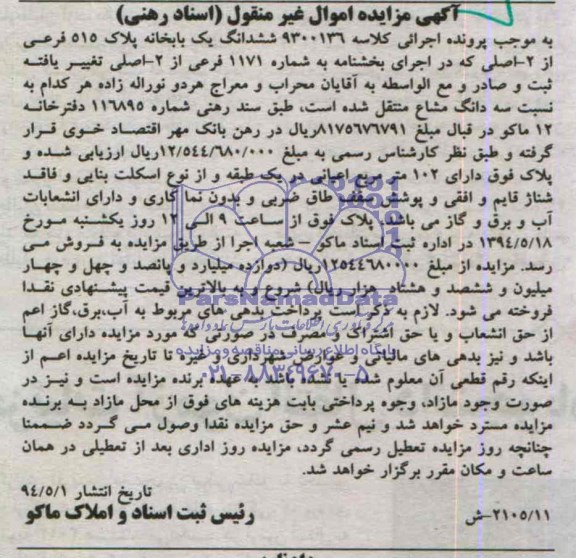 آگهی مزایده اموال غیر منقول (اسناد رهنی)
به موجب پرونده اجرائی کلاسه ۹۳۰۰۱۳۶ ششدانگ یک بابخانه پلاک ۵۱۵ فرعی
از ۲-اصلی که در اجرای بخشنامه به شماره ۱۱۷۱ فرعی از ۲-اصلی تغییر یافته
ثبت و صادر و مع الواسطه به آقایان محراب و معراج هردو نوراله زاده هر کدام به
نسبت سه دانگ مشاع منتقل شده است، طبق سند رهنی شماره ۱۱۶۸۹۵ دفترخانه
۱۲ ماکو در قبال مبلغ ۸۱۷۵۶۷۶۷۹۱ریال در رهن بانک مهر اقتصاد خوی قرار
گرفته و طبق نظر کارشناس رسمی به مبلغ ۱۲/۵۴۴/۶۸۰/۰۰۰ریال ارزیابی شده و
پلاک فوق دارای ۱۰۲ متر مربع اعیانی در یک طبقه و از نوع اسکلت بنایی و فاقد
شناژ قایم و افقی و پوشش سقف طاق ضربی و بدون نما کاری و دارای انشعابات
آب و برق و گاز می باشد. پلاک فوق از ساعت ۹ الی ۱۲ روز یکشنبه مورخ
۱۳۹۴/۵/۱۸ در اداره ثبت اسناد ماکو – شعبه اجرا از طریق مزایده به فروش می
رسد. مزایده از مبلغ ۱۲۵۴۴۶۸۰۰۰۰ریال (دوازده میلیارد و پانصد و چهل و چهار
میلیون و ششصد و هشتاد هزار ریال) شروع و به بالاترین قیمت پیشنهادی نقدا
فروخته می شود. لازم به ذکر است پرداخت بدهی های مربوط به آب،برق،گاز اعم
از حق انشعاب و یا حق اشتراک و مصرف در صورتی که مورد مزایده دارای آنها
باشد و نیز بدهی های مالیاتی و عوارض شهرداری و غیره تا تاریخ مزایده اعم از
اینکه رقم قطعی آن معلوم شده یا نشده باشد به عهده برنده مزایده است و نیز در
صورت وجود مازاد، وجوه پرداختی بابت هزینه های فوق از محل مازاد به برنده
مزایده مسترد خواهد شد و نیم عشر و حق مزایده نقدا وصول می گردد ضمنا
چنانچه روز مزایده تعطیل رسمی گردد، مزایده روز اداری بعد از تعطیلی در همان
ساعت و مکان مقرر برگزار خواهد شد.
تاریخ انتشار ۹۴/۵/۱
رئیس ثبت اسناد و املاک ماکو
۲۱۰۵/۱۱-ش
ParsNamadData
پایگاه اطلاع رسانی مناقصه و مزایده
۰۲۱-۸۸۳۴۹۶۷۰-۵